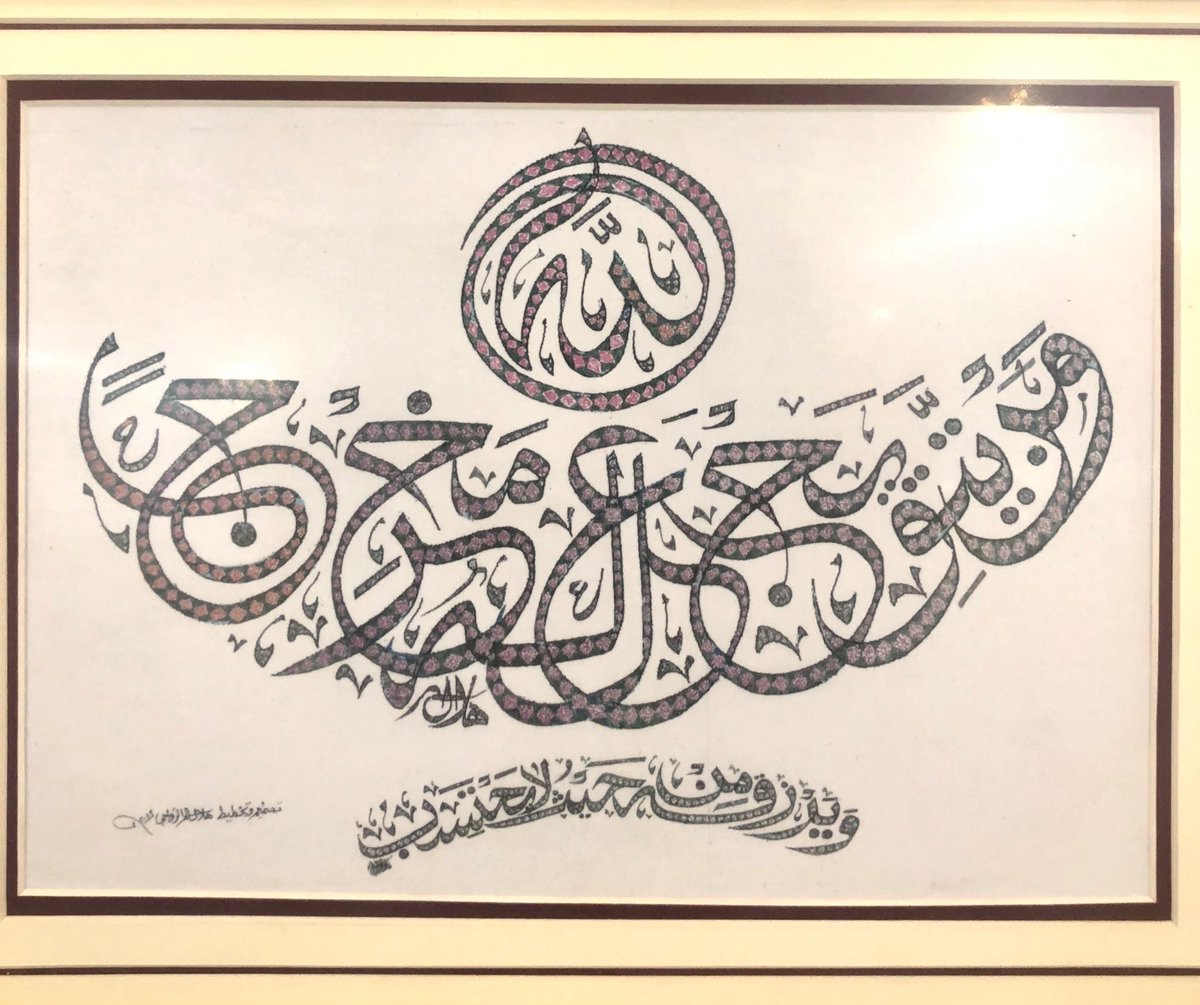 الله
وَمَن يَتَّقِ يَجْعَل لَّهُ مَخْرَجًا
وَيَرْزُقْهُ مِنْ حَيْثُ لَا يَحْتَسِبُ
تصميم وتخطيط